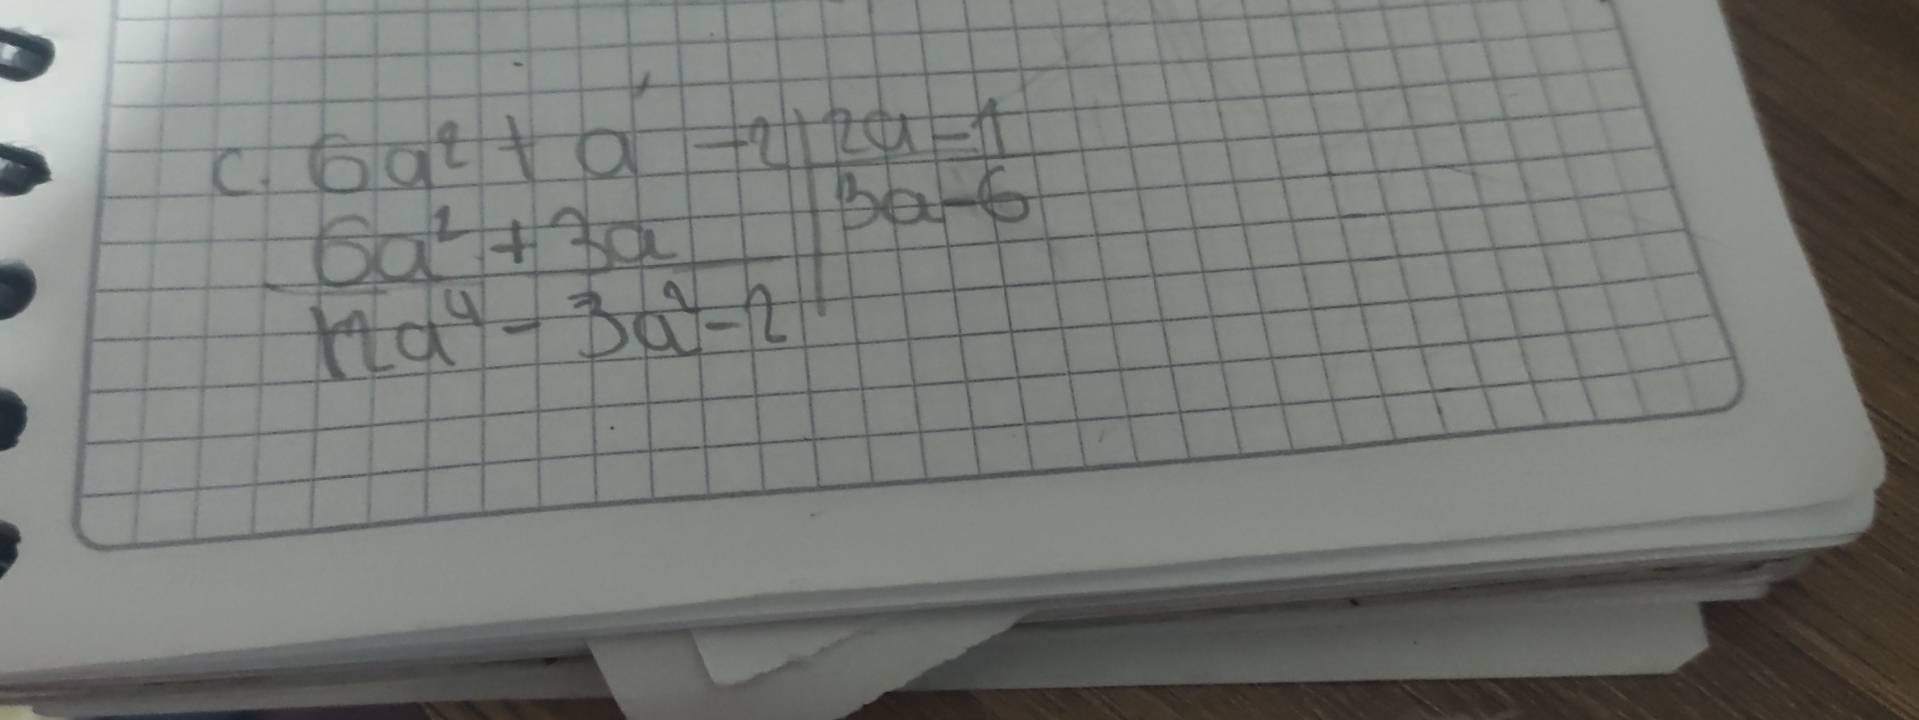 c. 6a² + a - 2 | 2a - 1
6a² + 3a | 3a - 6
12a⁴ - 3a² - 2